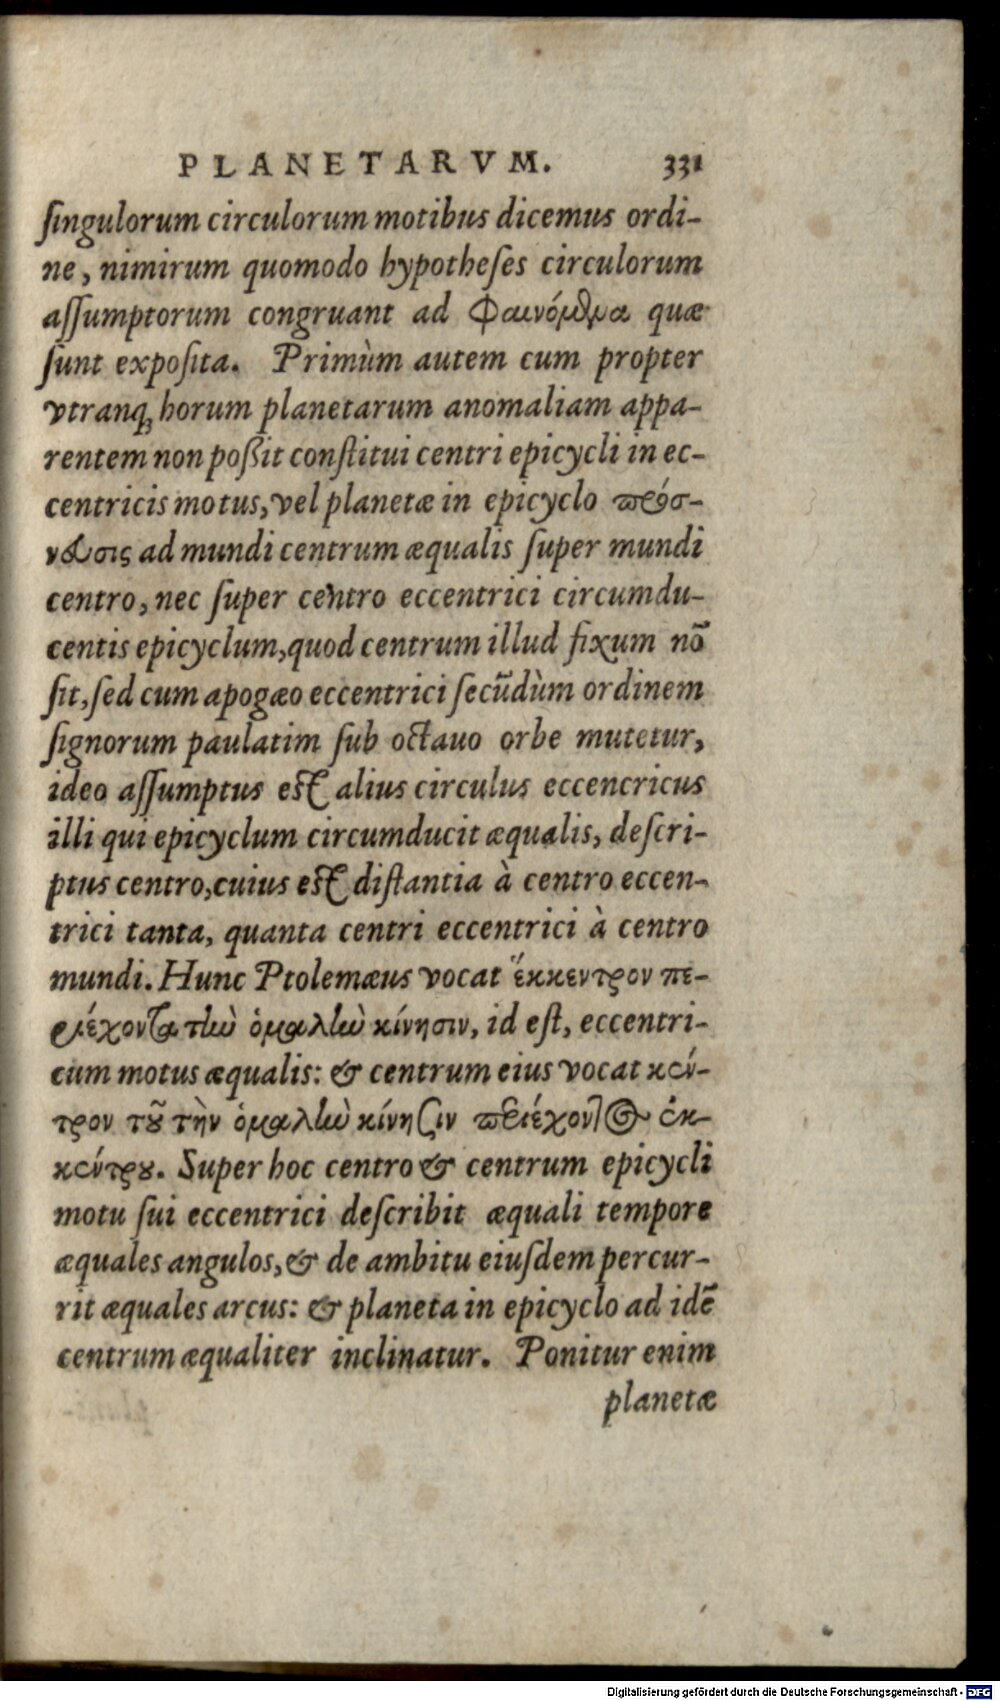 PLANETARVM. 331
ſingulorum circulorum motibus dicemus ordi-
ne, nimirum quomodo hypotheſes circulorum
aſſumptorum congruant ad Φαινόμϑμα quæ
ſunt expoſita. Primùm autem cum propter
vtranq; horum planetarum anomaliam appa-
rentem non poßit conſtitui centri epicycli in ec-
centricis motus, vel planetæ in epicyclo πρόσ-
νδυσις ad mundi centrum æqualis ſuper mundi
centro, nec ſuper centro eccentrici circumdu-
centis epicyclum, quod centrum illud fixum nō
ſit, ſed cum apogæo eccentrici ſecūdùm ordinem
ſignorum paulatim ſub octauo orbe mutetur,
ideo aſſumptus eſt alius circulus eccencricus
illi qui epicyclum circumducit æqualis, deſcri-
ptus centro, cuius eſt diſtantia à centro eccen-
trici tanta, quanta centri eccentrici à centro
mundi. Hunc Ptolemæus vocat ἔκκεντρον πε-
ριέχοντα τὴν ὁμαλὴν κίνησιν, id eſt, eccentri-
cum motus æqualis: & centrum eius vocat κέν-
τρον τȣ͂ τὴν ὁμαλὴν κίνησιν περιέχοντ@ ἐκ-
κέντρȣ. Super hoc centro & centrum epicycli
motu ſui eccentrici deſcribit æquali tempore
æquales angulos, & de ambitu eiuſdem percur-
rit æquales arcus: & planeta in epicyclo ad idē
centrum æqualiter inclinatur. Ponitur enim
planetæ
Digitalisierung gefördert durch die Deutsche Forschungsgemeinschaft - DFG